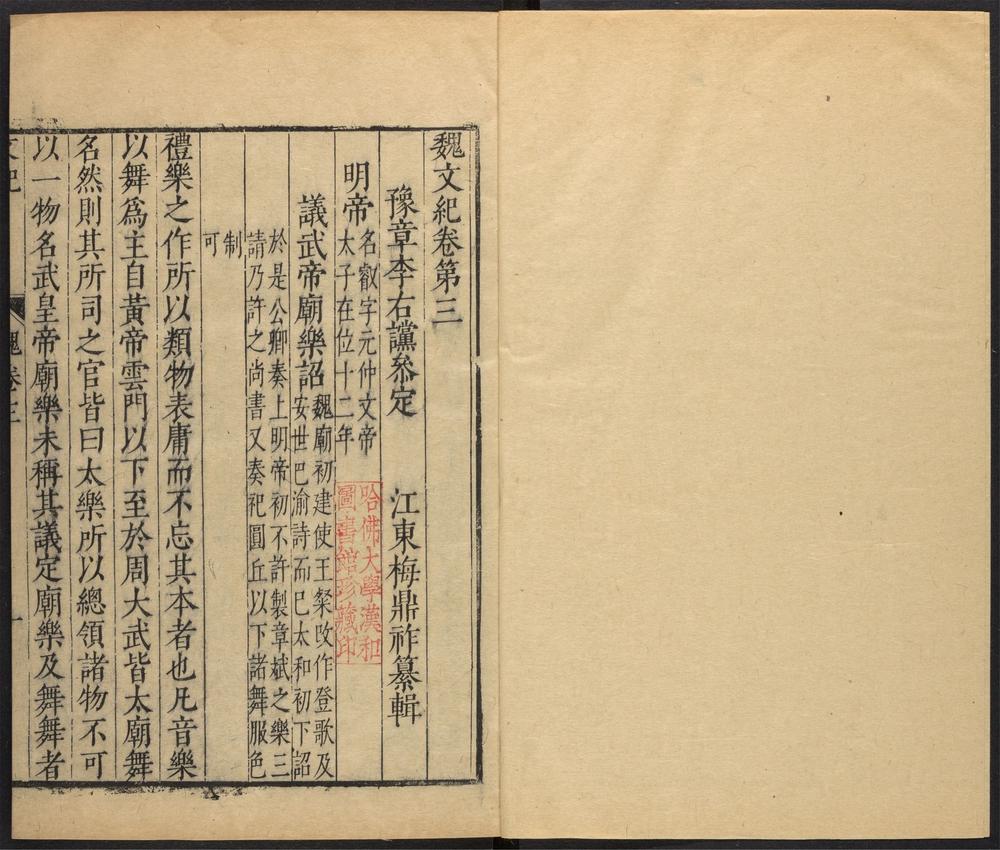 魏文紀卷第三
豫章李右讜叅定　江東梅鼎祚纂輯
明帝
名叡字元仲文帝
太子在位十二年
議武帝廟樂詔
魏廟初建使王粲攺作登歌及
安世巴渝詩而已太和初下詔
於是公卿奏上明帝初不許製章斌之樂三
請乃許之尚書又奏祀圓丘以下諸舞服色
制
可
禮樂之作所以類物表庸而不忘其本者也凡音樂
以舞爲主自黃帝雲門以下至於周大武皆太廟舞
名然則其所司之官皆曰太樂所以總領諸物不可
以一物名武皇帝廟樂未稱其議定廟樂及舞舞者
魏卷三
一
哈佛大學漢和
圖書館珍藏印